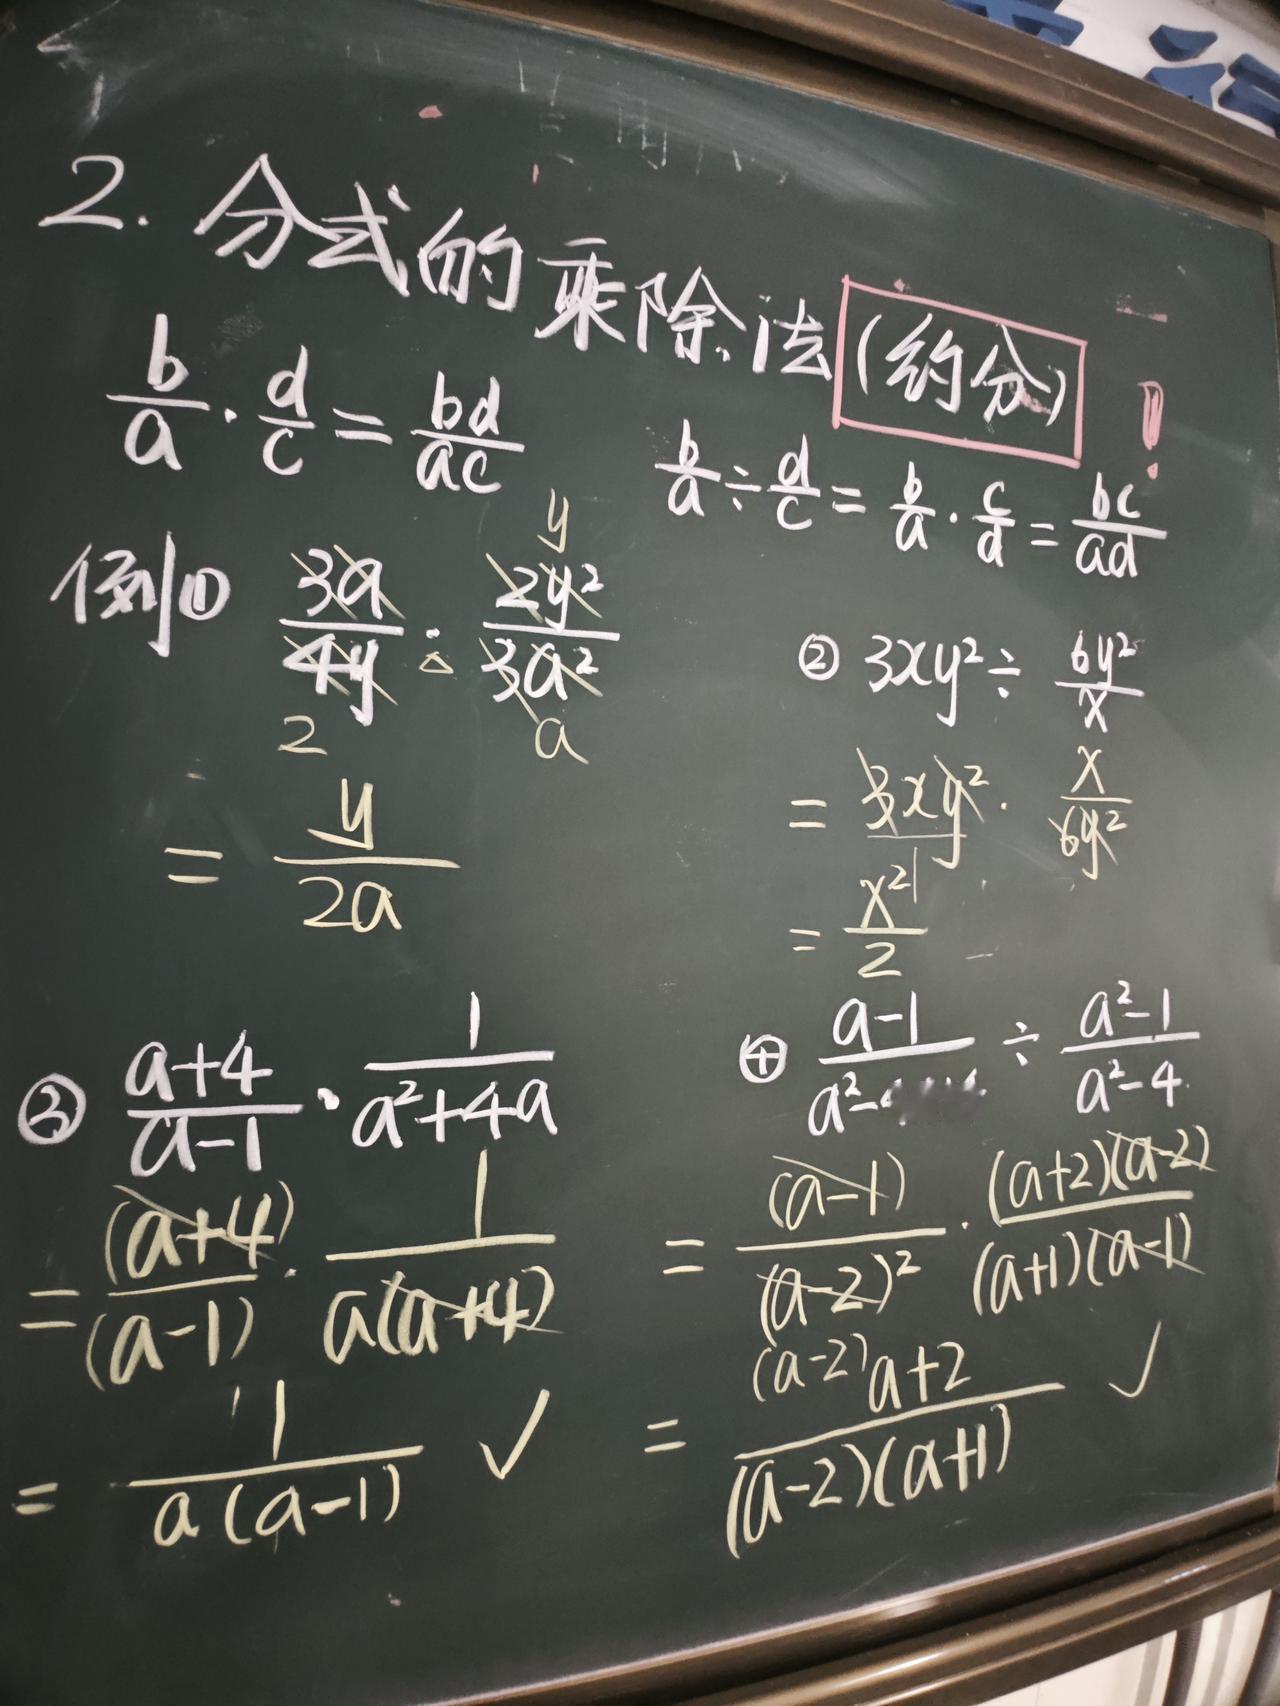 2. 分式的乘除法(约分)!
b/a · d/c = bd/ac
b/a ÷ d/c = b/a · c/d = bc/ad
例① 3a/4y · 2y²/3a²
y
2 a
= y/2a
② 3xy² ÷ 6y²/x
= 3xy² · x/6y²
= x²/2
③ a+4/a-1 · 1/a²+4a
= (a+4)/(a-1) · 1/a(a+4)
= 1/a(a-1) ✓
④ a-1/a²- ÷ a²-1/a²-4
= (a-1)/(a-2)² · (a+2)(a-2)/(a+1)(a-1)
(a-2)
= a+2/(a-2)(a+1) ✓